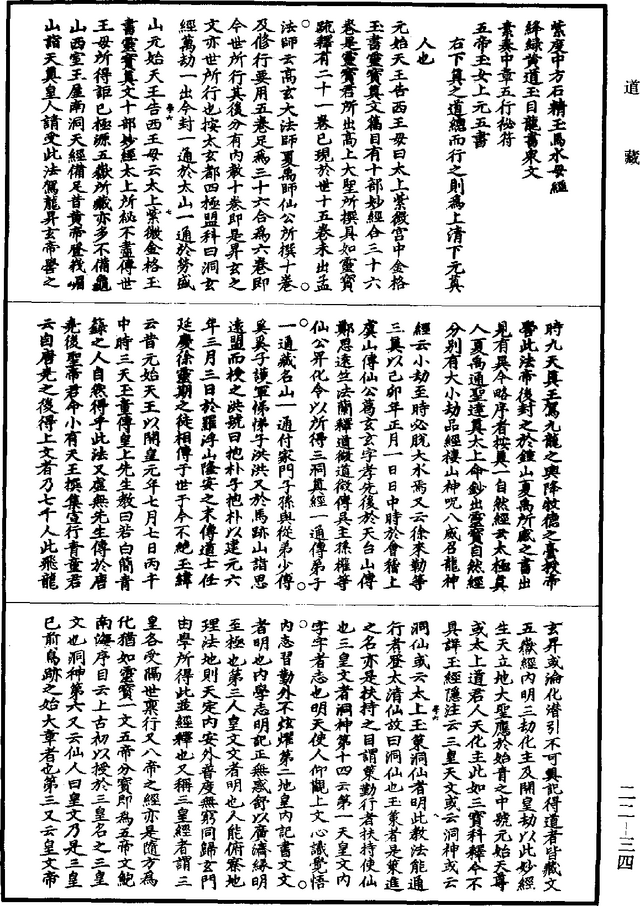 道藏
紫度中方石精玉馬水母經
絳綠黃道玉目龍書東文
素奏中章五行祕符
五帝玉女上元五書
右下眞之道總而行之則爲上清下元眞
人也
元始天王告西王母曰太上紫微宮中金格
玉書靈寶眞文篇目有十部妙經合三十六
卷是靈寶君所出高上大聖所撰具如靈寶
䟽釋有二十一卷已現於世十五卷未出孟
法師云高玄大法師夏禹師仙公所撰十卷
及修行要用五卷足爲三十六合爲六卷即
今世所行其後分有內教十卷即是昇玄之
文亦世所行也按太玄都四極盟科曰洞玄
經萬劫一出今封一通於太山一通於勞盛
山元始天王告西王母云太上紫微金格玉
書靈寶眞文十部妙經太上所祕不盡傳世
王母所得詎已極源五嶽所藏亦多不備龜
山西室王屋南洞天經備足昔黃帝登峩嵋
山詣天眞皇人請受此法駕龍昇玄帝嚳之
時九天眞王駕九龍之輿降牧德之臺授帝
嚳此法帝後封之於鍾山夏禹所感之書出
見有異今略序者按眞一自然經云太極眞
人夏禹通聖達眞太上命鈔出靈寶自然經
分別有大小劫品經樓山神呪八威召龍神
經云小劫至時必脫大水焉又云徐來勒等
三眞以己卯年正月一日日中時於會稽上
虞山傳仙公葛玄玄字孝先後於天台山傳
鄭思遠竺法蘭釋道微道微傳吳主孫權等
仙公昇化令以所得三洞眞經一通傳弟子
一通藏名山一通付家門子孫與從弟少傅
奚奚子護軍悌悌子洪洪又於馬跡山詣思
遠盟而授之洪號曰抱朴子抱朴以建元六
年三月三日於羅浮山隆安之末傳道士任
延慶徐靈期之徒相傳于世于今不絕玉緯
云昔元始天王以開皇元年七月七日丙午
中時三天玉童傳皇上先生教曰若白簡青
籙之人自然得乎此法又虛無先生傳於唐
堯後聖帝君命小有天王撰集宣行青童君
云自唐堯之後得上文者乃七千人此飛龍
玄昇或淪化潛引不可具記得道者皆藏文
五嶽經內明三劫化主及開皇劫以此妙經
生天立地大聖應於始青之中號元始天尊
或太上道君人天化主此如三寶科釋今不
具詳玉經隱注云三皇天文或云洞神或云
洞仙或云太上玉策洞仙者明此教法能通
行者登太清仙故曰洞仙也玉策者是策進
之名亦是扶持之目謂策勤行者扶持使仙
也三皇文者洞神第十四云第一天皇文內
字字者志也明天使人仰觀上文心識覺悟
內志習勤外不炫燿第二地皇內記書文文
者明也內學志明記正無惑舒以廣濟緣明
至極也第三人皇文文者明也人能俯察地
理法地則天定內安外普度無窮同歸玄門
由學所得此並經釋也又稱三皇經者謂三
皇各受隔世稟行又八帝之經亦是隨方爲
化猶如靈寶一文五帝分寶即爲五帝文鮑
南海序目云上古初以授於三皇名之三皇
文也洞神第六又云仙人曰皇文乃是三皇
已前鳥跡之始大章者也第三又云皇文帝
二二-三四